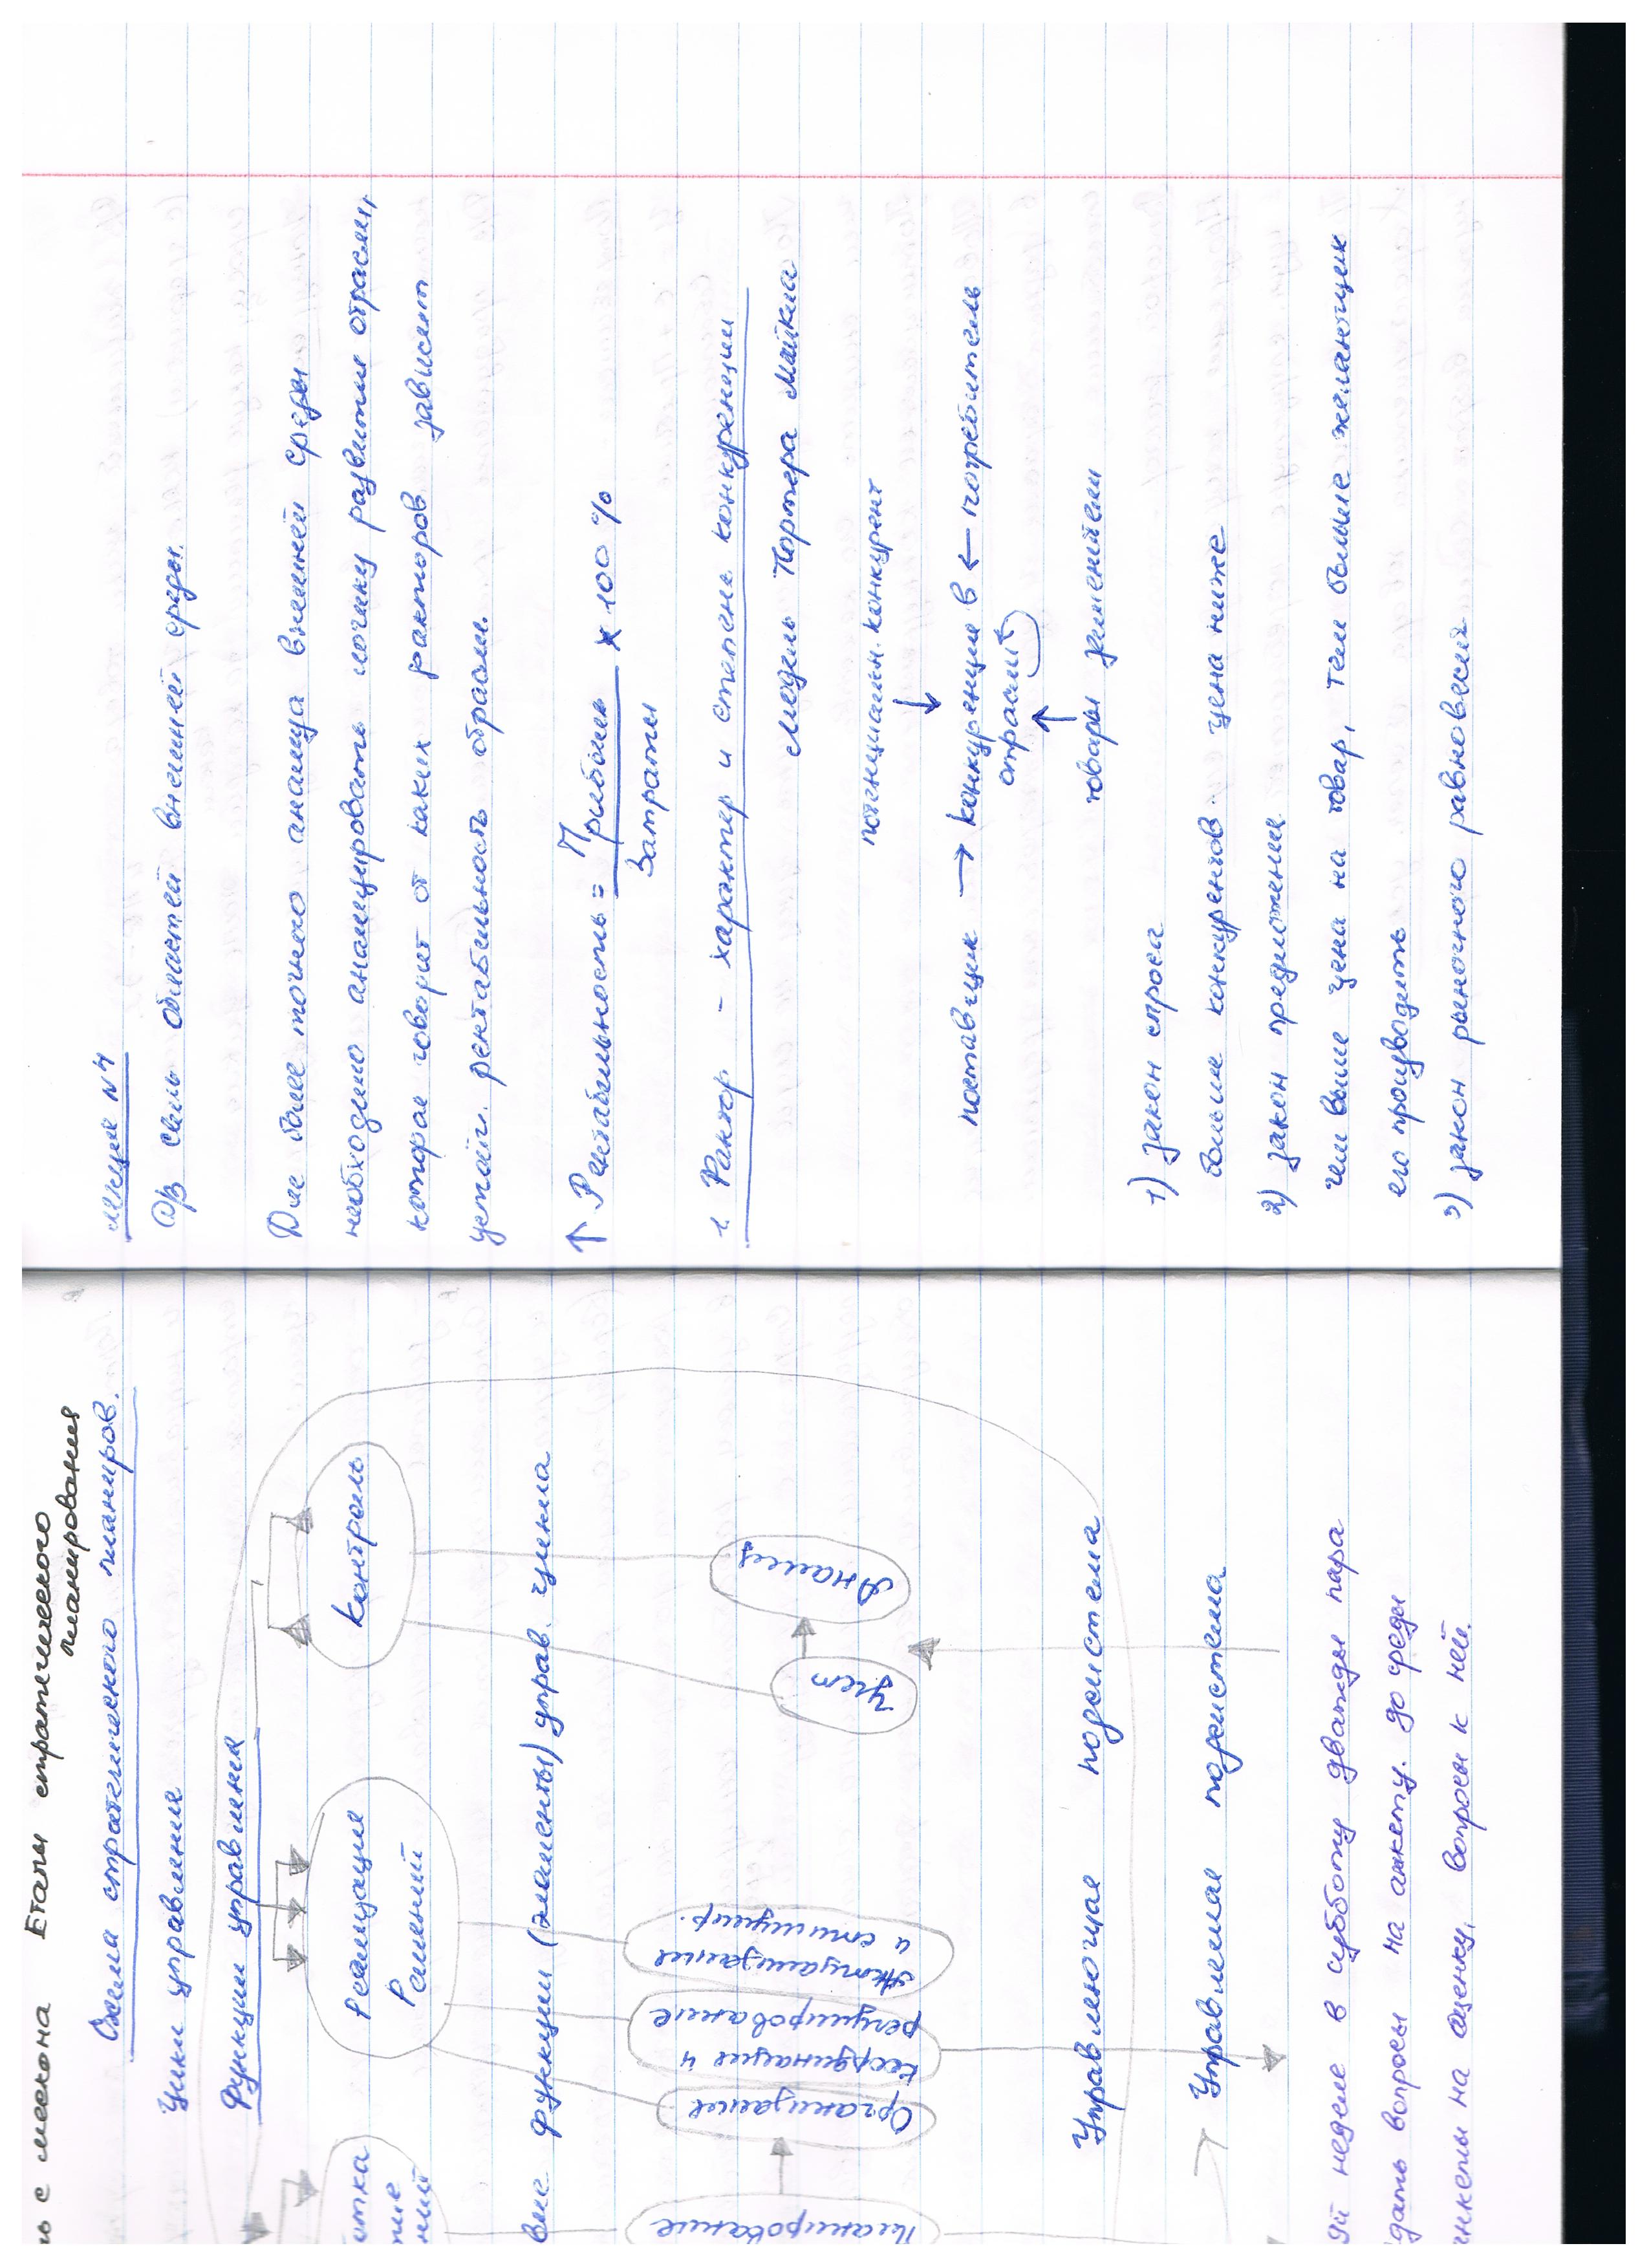 нь с мескона Етапы стратегического
планирования
Схема стратегического планиров.
Цикл управления
Функции управления
отка
ние
ний
Реализация
Решений
Контроль
вные функции (элементы) управ. цикла
Планирование
Организация
координация и
регулирование
Активизация
и стимулир.
Учет
Анализ
Управляющая подсистема
Управляемая подсистема
ой неделе в субботу дважды пара
дать вопросы на анкету. до среды
анкеты на оценку, вопросы к ней.
Лекция №4
семь областей внешней среды.
Для более точного анализа внешней среды
необходимо анализировать логику развития отрасли,
которая говорит от каких факторов зависит
устойч. рентабельность отрасли.
↑ Рентабельность = Прибыль / Затраты × 100 %
1. Фактор - характер и степень конкуренции
Модель Портера Майкла
потенциальн. конкурент
↓
поставщик → конкуренция в ← потребитель
отрасли
↑
товары заменители
1) закон спроса
больше конкурентов цена ниже
2) закон предложения
чем выше цена на товар, тем больше желающих
его производить
3) закон рыночного равновесия